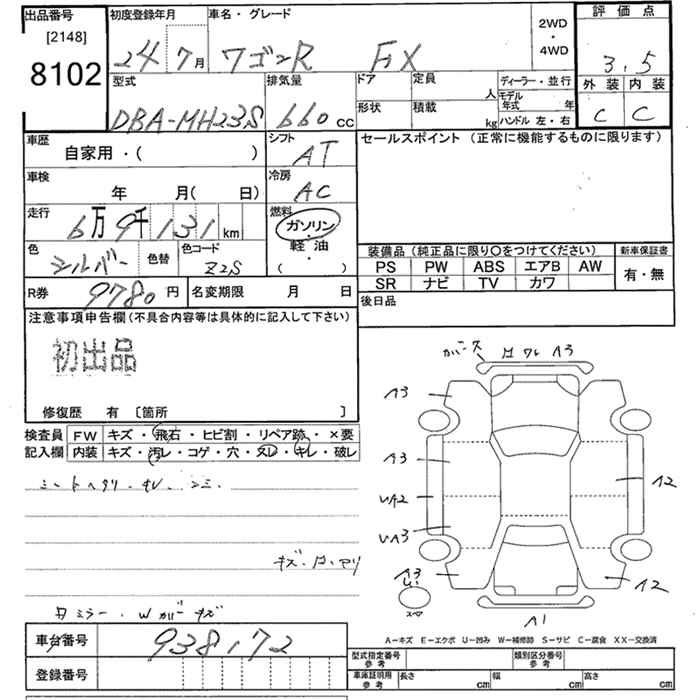 出品番号 初度登録年月 車名・グレード 2WD・4WD 評価点
[2148]
8102
24 7月 ワゴンR FX 3.5
型式 排気量 ドア 定員 人 ディーラー・並行 外装 内装
DBA-MH23S 660 cc 形状 積載 kg モデル年式 年 ハンドル 左・右 C C
車歴 シフト セールスポイント (正常に機能するものに限ります)
自家用・( ) AT
車検 冷房
年 月( 日) AC
走行 燃料
6万9千131km ガソリン・軽油
色 色替 色コード ( )
シルバー Z2S
装備品 (純正品に限り○をつけてください) 新車保証書
PS PW ABS エアB AW 有・無
SR ナビ TV カワ
R券 9780円 名変期限 月 日 後日品
注意事項申告欄 (不具合内容等は具体的に記入して下さい)
初出品
修復歴 有 〔箇所 〕
検査員 FW キズ・飛石・ヒビ割・リペア跡・×要
記入欄 内装 キズ・汚レ・コゲ・穴・スレ・キレ・破レ
A3
A3
A3
UA2
UA3
A3
A2
A2
A1
スペア
A-キズ E-エクボ U-凹み W-補修跡 S-サビ C-腐食 XX-交換済
車台番号 938172
登録番号
型式指定番号 参考 類別区分番号 参考
車庫証明用 参考 長さ cm 幅 cm 高さ cm